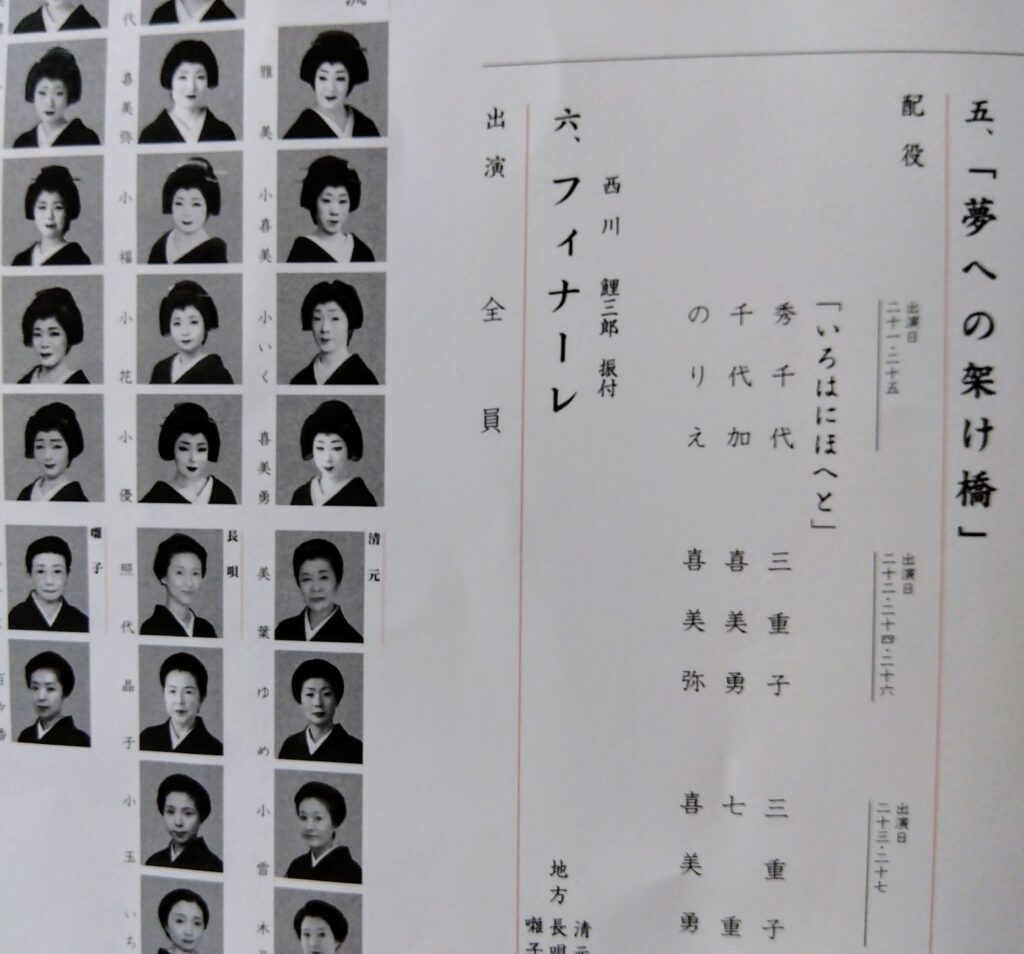 五、「夢への架け橋」
配役
出演日
二十一・二十五
「いろはにほへと」
秀千代
千代加
のりえ
出演日
二十二・二十四・二十六
三重子
喜美勇
喜美弥
出演日
二十三・二十七
三重子
七重
喜美勇
西川 鯉三郎 振付
六、フィナーレ
出演 全員
地方
清元
長唄
囃子
流
雅美
小喜美
小いく
喜美勇
代
喜美弥
小福
小花
小優
清元
美葉
ゆめ
小雪
木
長唄
照代
晶子
小玉
いち
囃子